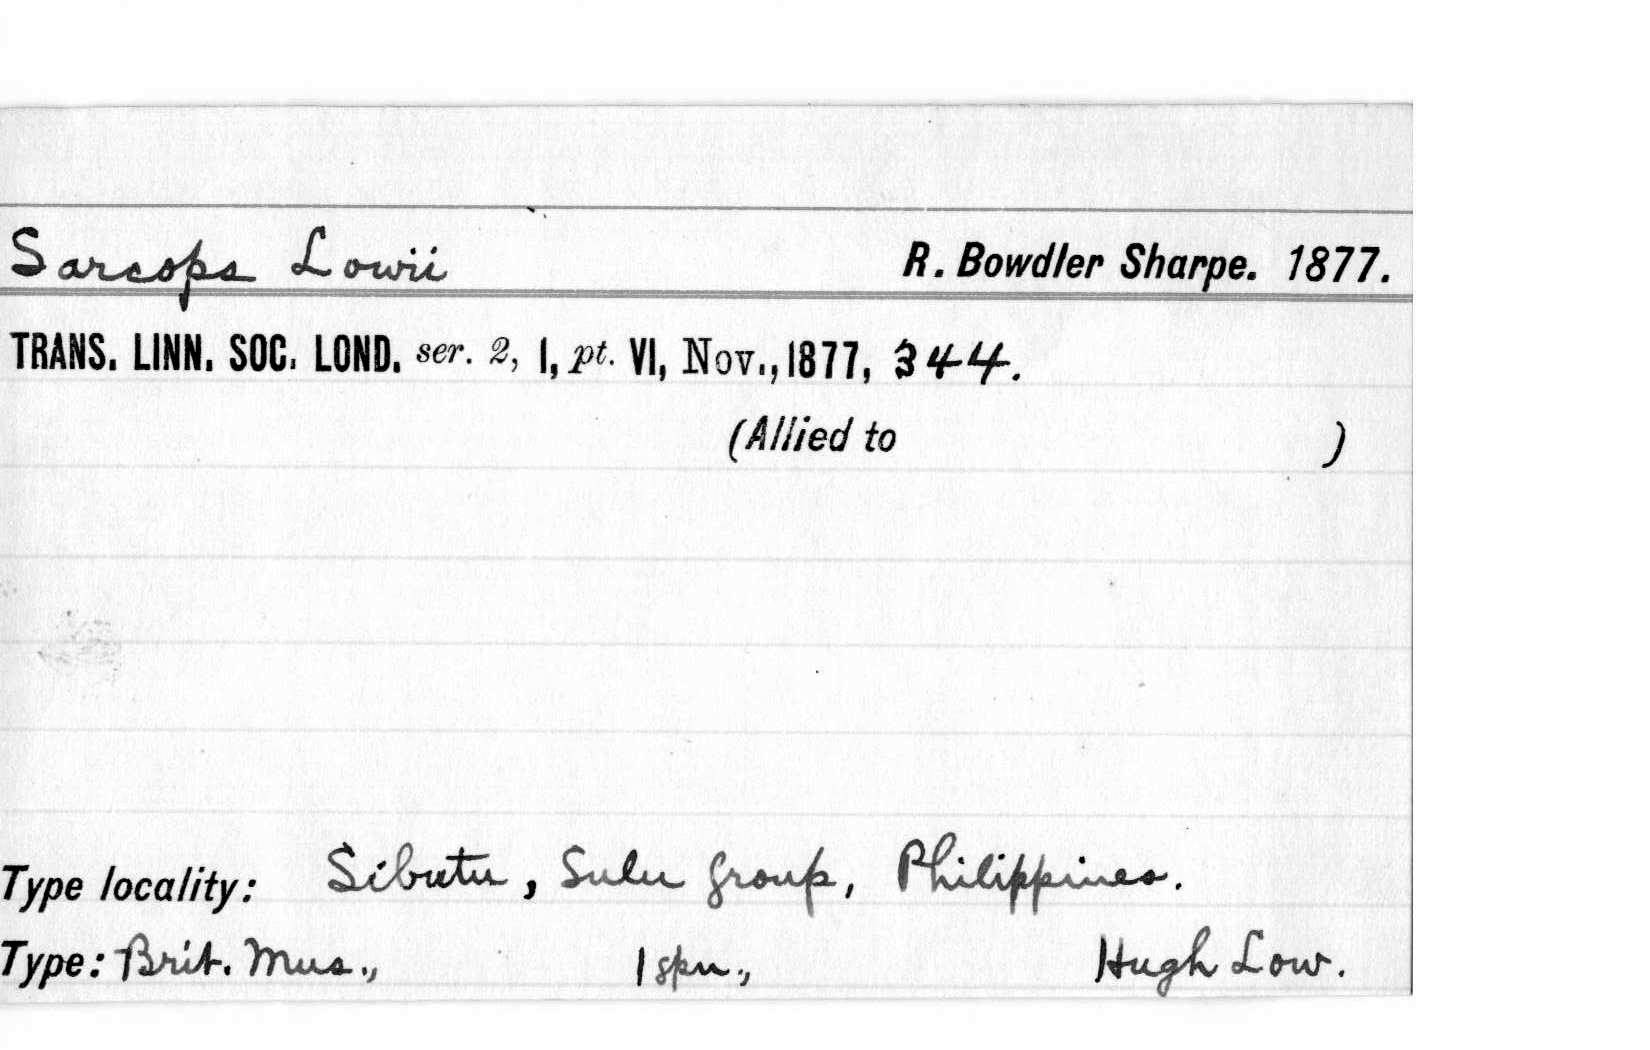 Sarcops Lowii R. Bowdler Sharpe. 1877.
TRANS. LINN. SOC. LOND. ser. 2, I, pt. VI, Nov., 1877, 344.
(Allied to )
Type locality: Sibutu, Sulu group, Philippines.
Type: Brit. Mus., 1 spn., Hugh Low.